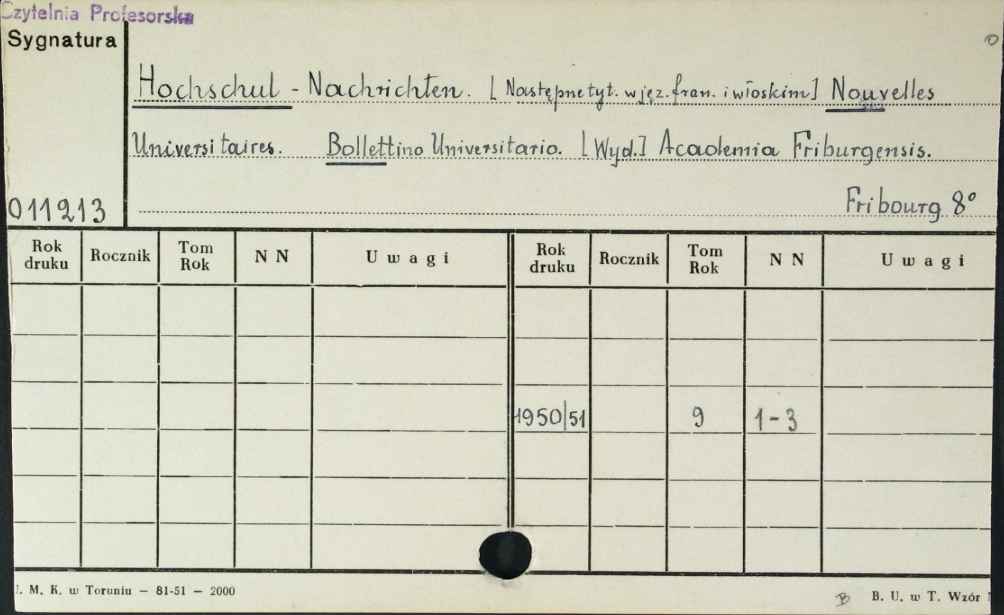 Czytelnia Profesorska
Sygnatura
Hochschul - Nachrichten. [Następne tyt. w jęz. fran. i włoskim] Nouvelles
Universitaires. Bollettino Universitario. [Wyd.] Academia Friburgensis.
011213 Fribourg 8°
Rok druku Rocznik Tom Rok N N Uwagi Rok druku Rocznik Tom Rok N N Uwagi
1950/51 9 1-3
U. M. K. w Toruniu — 81-51 — 2000 B B. U. w T. Wzór